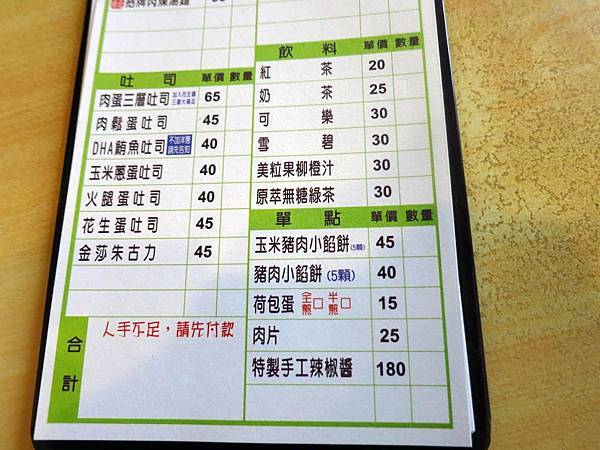 招牌肉燥湯麵
吐司 單價 數量
肉蛋三層吐司 65
肉鬆蛋吐司 45
DHA鮪魚吐司 不加洋蔥 請先告知 40
玉米蔥蛋吐司 40
火腿蛋吐司 40
花生蛋吐司 45
金莎朱古力 45
合計
人手不足,請先付款
飲料 單價 數量
紅茶 20
奶茶 25
可樂 30
雪碧 30
美粒果柳橙汁 30
原萃無糖綠茶 30
單點 單價 數量
玉米豬肉小餡餅(5顆) 45
豬肉小餡餅(5顆) 40
荷包蛋 全熟□ 半熟□ 15
肉片 25
特製手工辣椒醬 180